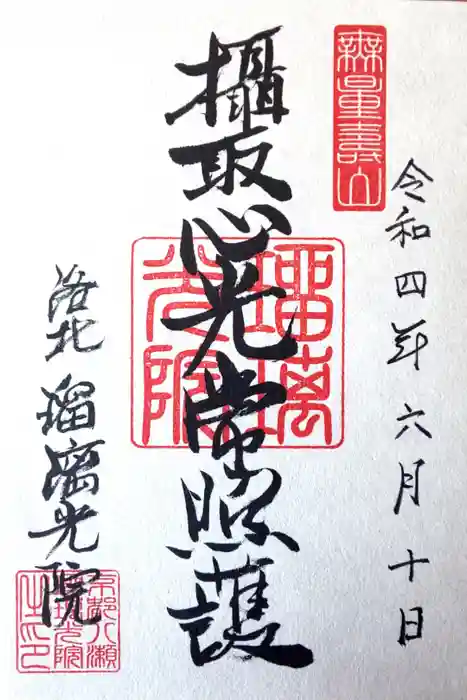 無量壽山
令和四年六月十日
攝取心光常照護
瑠璃光院
洛北 瑠璃光院
京都八瀬瑠璃光院之印